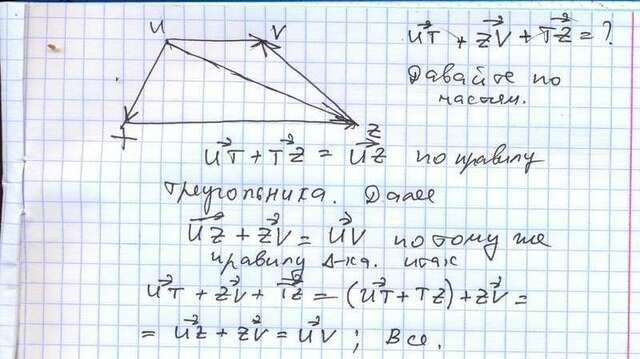 U V
T Z
UT + ZV + TZ = ?
Давайте по
частям.
UT + TZ = UZ по правилу
треугольника. Далее
UZ + ZV = UV по тому же
правилу Δ-ка. итак
UT + ZV + TZ = (UT + TZ) + ZV =
= UZ + ZV = UV ; Все.